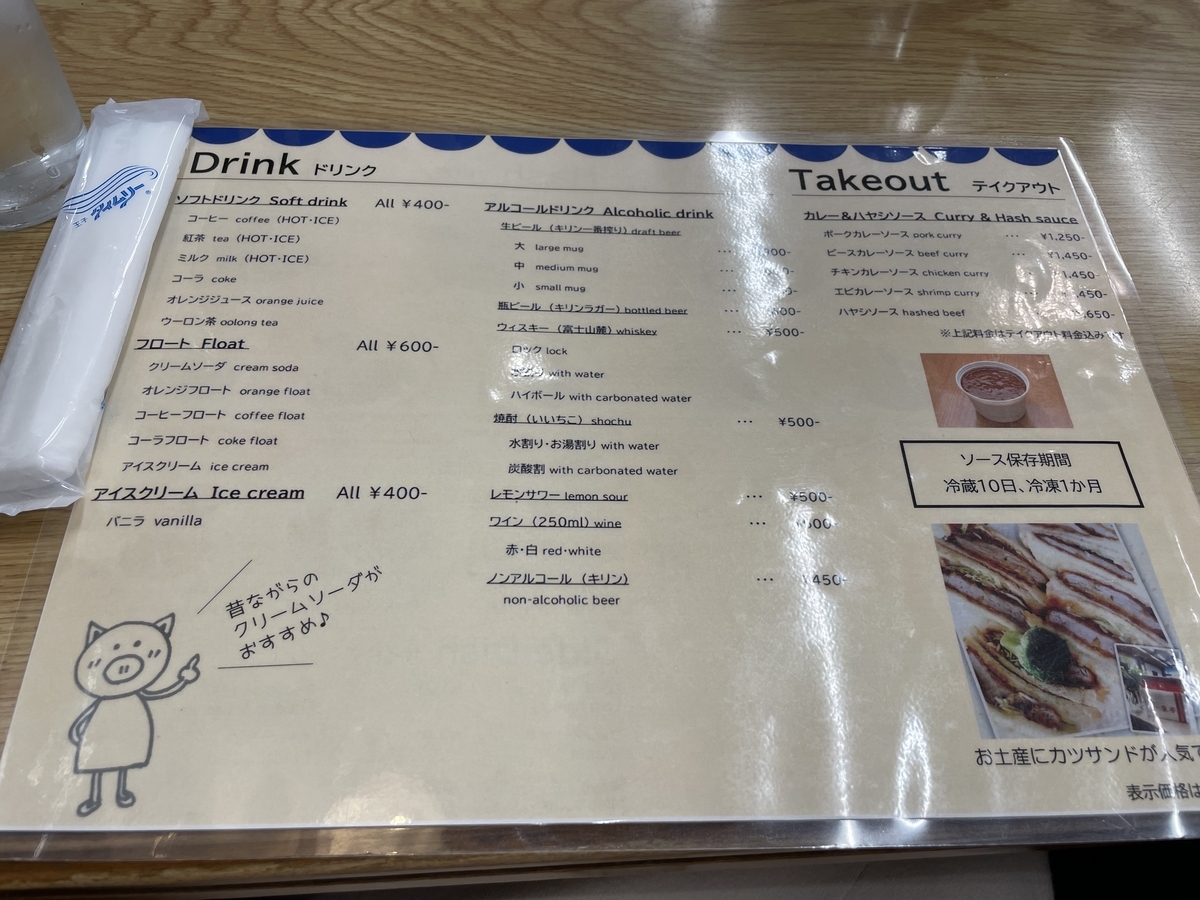 Drink ドリンク
ソフトドリンク Soft drink All ¥400-
コーヒー coffee (HOT・ICE)
紅茶 tea (HOT・ICE)
ミルク milk (HOT・ICE)
コーラ coke
オレンジジュース orange juice
ウーロン茶 oolong tea
フロート Float All ¥600-
クリームソーダ cream soda
オレンジフロート orange float
コーヒーフロート coffee float
コーラフロート coke float
アイスクリーム ice cream
アイスクリーム Ice cream All ¥400-
バニラ vanilla
昔ながらの
クリームソーダが
おすすめ♪
アルコールドリンク Alcoholic drink
生ビール（キリン一番搾り）draft beer
大 large mug ···
中 medium mug ···
小 small mug ···
瓶ビール（キリンラガー）bottled beer ···
ウィスキー（富士山麓）whiskey ··· ¥500-
ロック lock
with water
ハイボール with carbonated water
焼酎（いいちこ）shochu ··· ¥500-
水割り・お湯割り with water
炭酸割 with carbonated water
レモンサワー lemon sour ··· ¥500-
ワイン（250ml）wine ···
赤・白 red・white
ノンアルコール（キリン） ··· ¥450-
non-alcoholic beer
Takeout テイクアウト
カレー＆ハヤシソース Curry & Hash sauce
ポークカレーソース pork curry ··· ¥1,250-
ビースカレーソース beef curry ··· ¥1,450-
チキンカレーソース chicken curry 1,450-
エビカレーソース shrimp curry
ハヤシソース hashed beef ···
※上記料金はテイクアウト料金込みです
ソース保存期間
冷蔵10日、冷凍1か月
お土産にカツサンドが人気で
表示価格は